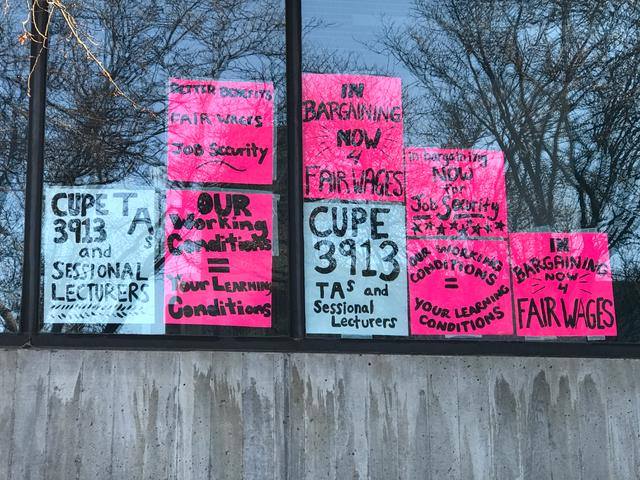 BETTER BENEFITS
FAIR WAGES
Job Security
CUPE TAs
3913
and
SESSIONAL
LECTURERS
OUR
Working
Conditions
=
Your Learning
Conditions
IN
BARGAINING
NOW
4
FAIR WAGES
CUPE
3913
TAs and
Sessional
Lecturers
in bargaining
NOW
for
Job Security
OUR WORKING
CONDITIONS
=
YOUR LEARNING
CONDITIONS
IN
BARGAINING
NOW
4
FAIR WAGES